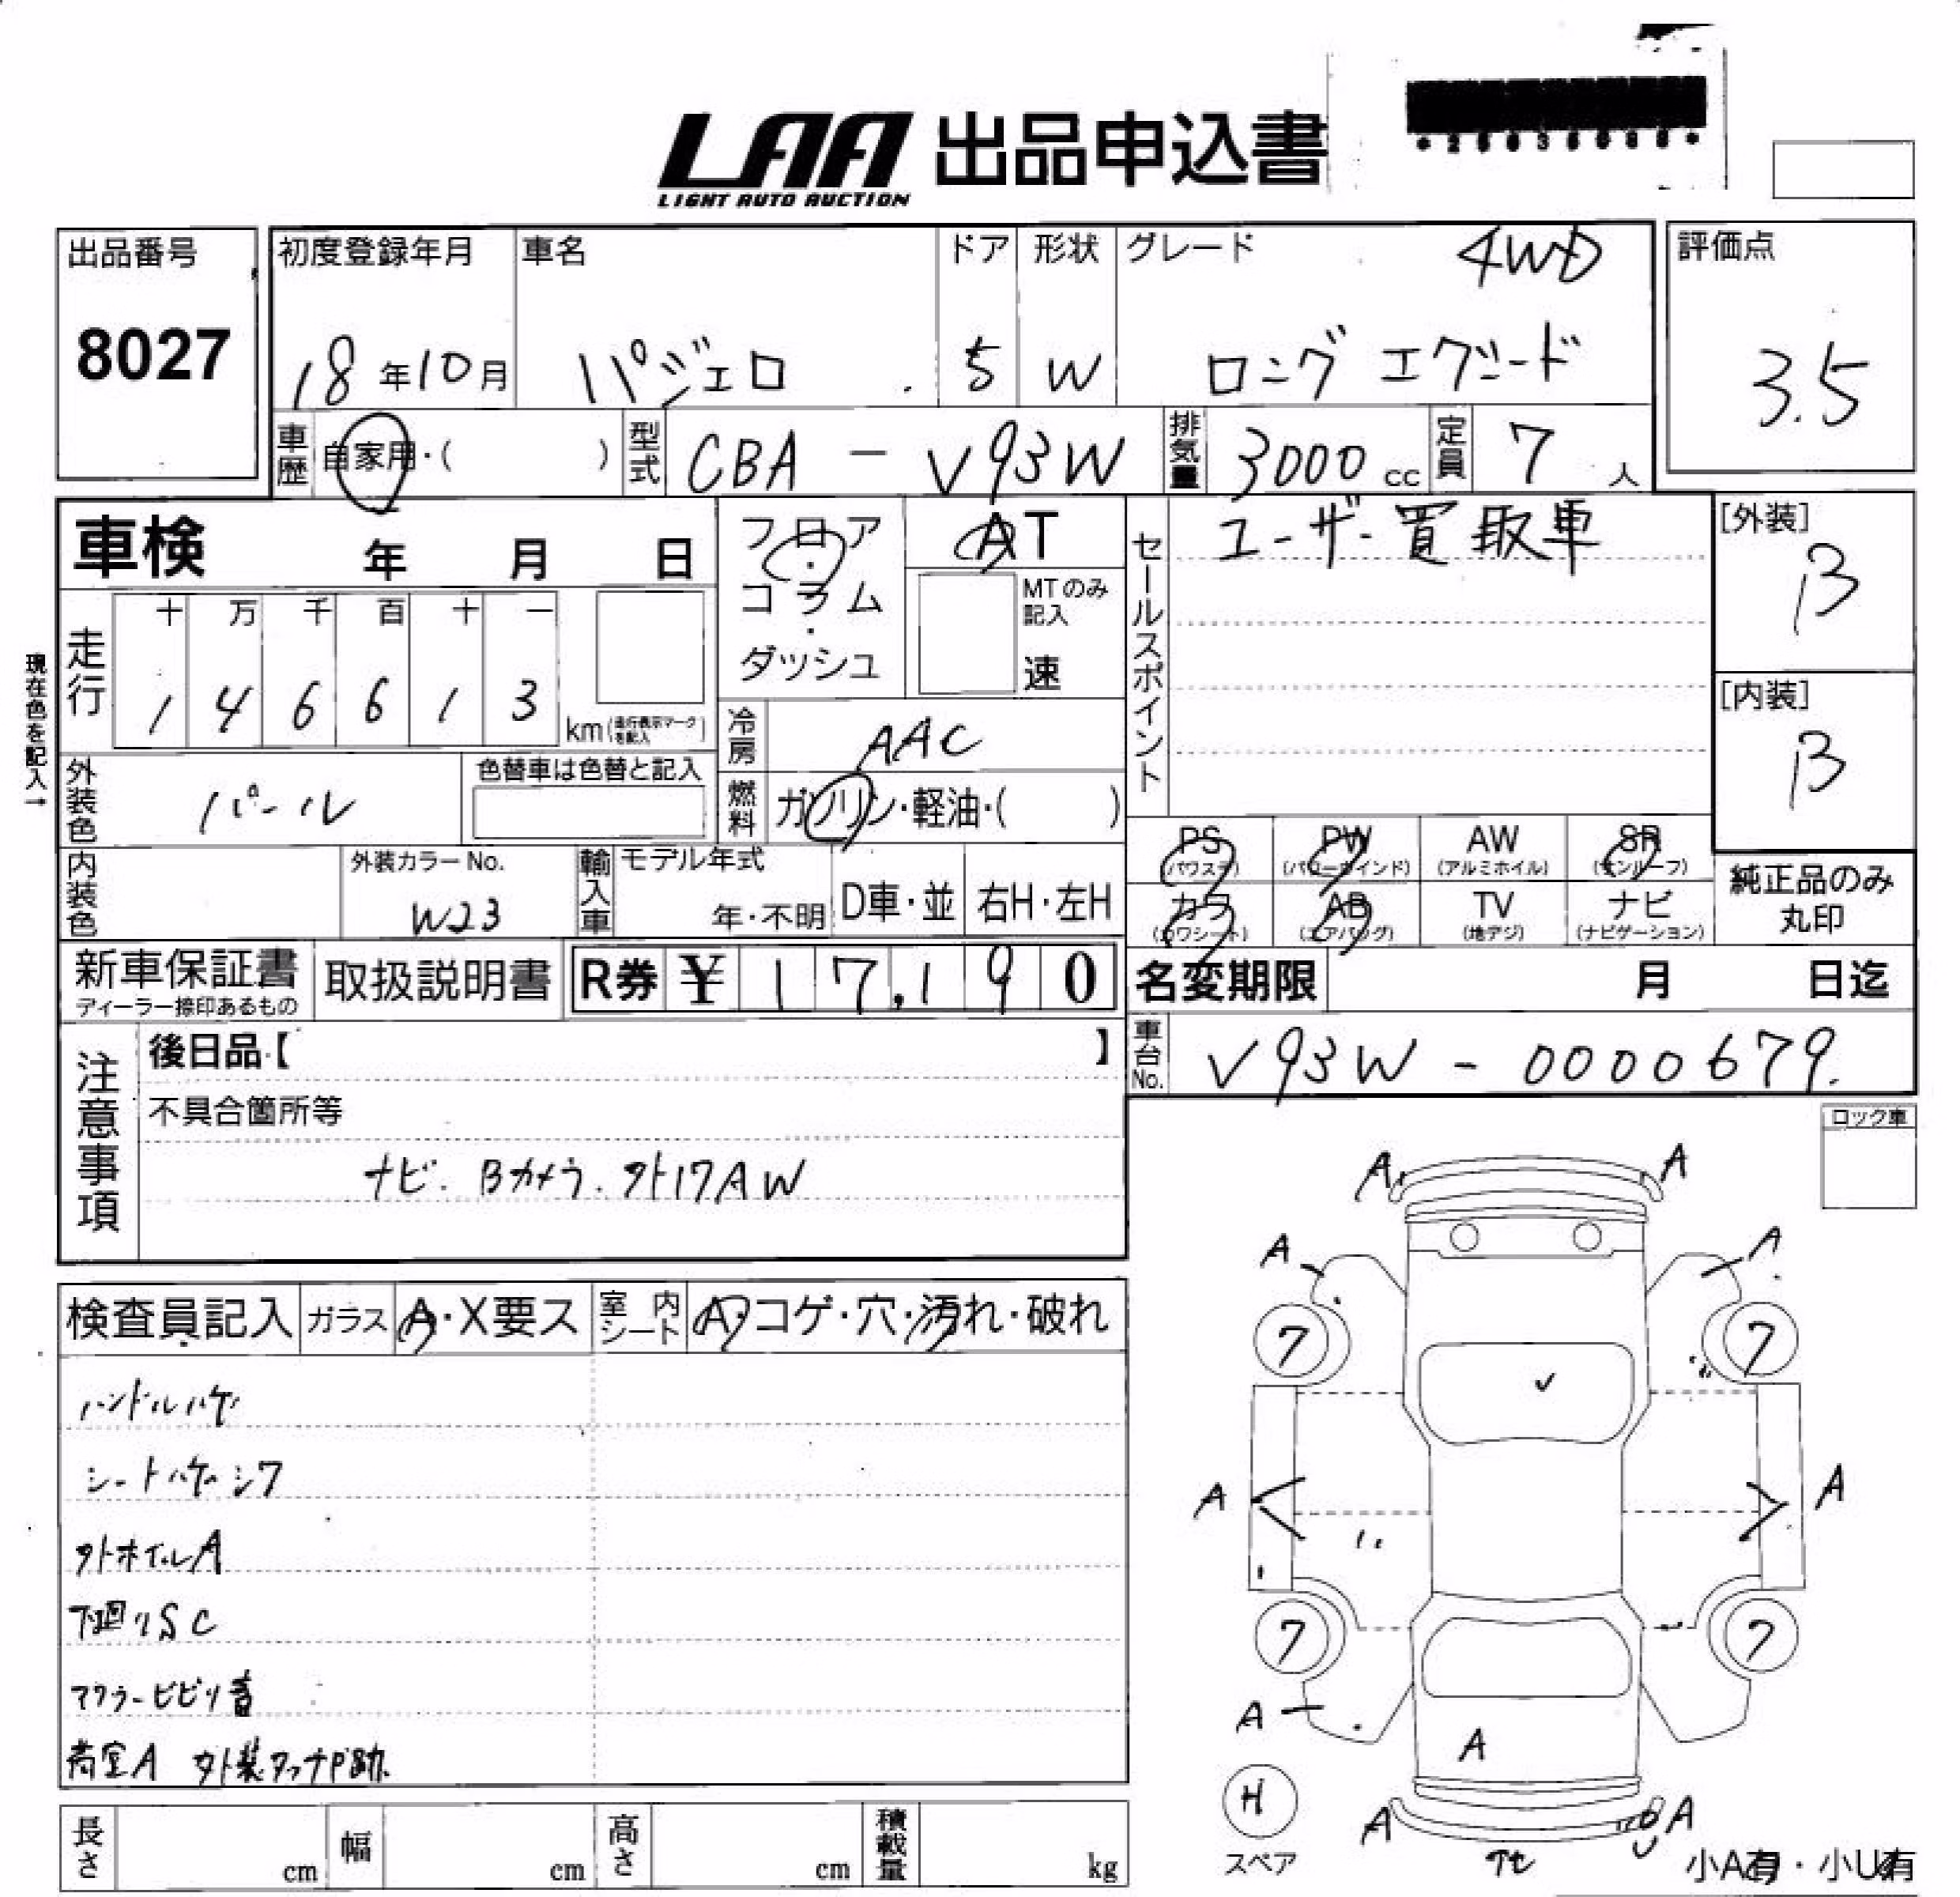 LAA 出品申込書
LIGHT AUTO AUCTION
出品番号
8027
初度登録年月
18年10月
車名
パジェロ
ドア
5
形状
W
グレード
4WD
ロング エクシード
評価点
3.5
車歴
自家用・( )
型式
CBA - V93W
排気量
3000cc
定員
7人
車検 年 月 日
走行
十 万 千 百 十 一
1 4 6 6 1 3
km(走行表示マークを記入)
現在色を記入→
フロア・コラム・ダッシュ
AT
MTのみ記入
速
冷房
AAC
燃料
ガソリン・軽油・( )
外装色
パール
色替車は色替と記入
内装色
外装カラーNo.
W23
輸入車
モデル年式
年・不明
D車・並
右H・左H
セールスポイント
ユーザー買取車
[外装]
B
[内装]
B
PS (パワステ)
PW (パワーウインド)
AW (アルミホイル)
SR (サンルーフ)
カワ (カワシート)
AB (エアバッグ)
TV (地デジ)
ナビ (ナビゲーション)
純正品のみ丸印
新車保証書
ディーラー捺印あるもの
取扱説明書
R券 ¥ 17,190
名変期限 月 日迄
車台No.
V93W - 0000679.
注意事項
後日品【 】
不具合箇所等
ナビ. Bカメラ. 外17AW
ロック車
検査員記入
ガラス
A・X要ス
室内シート
A・コゲ・穴・汚れ・破れ
ハンドルハゲ
シートハゲシワ
外ホイルA
下回りSC
マフラービビリ音
荷室A 外装タッチP跡
長さ cm
幅 cm
高さ cm
積載量 kg
A A
A A
7 7
A A
7 7
A
A
H
スペア
A A
小A有・小U有